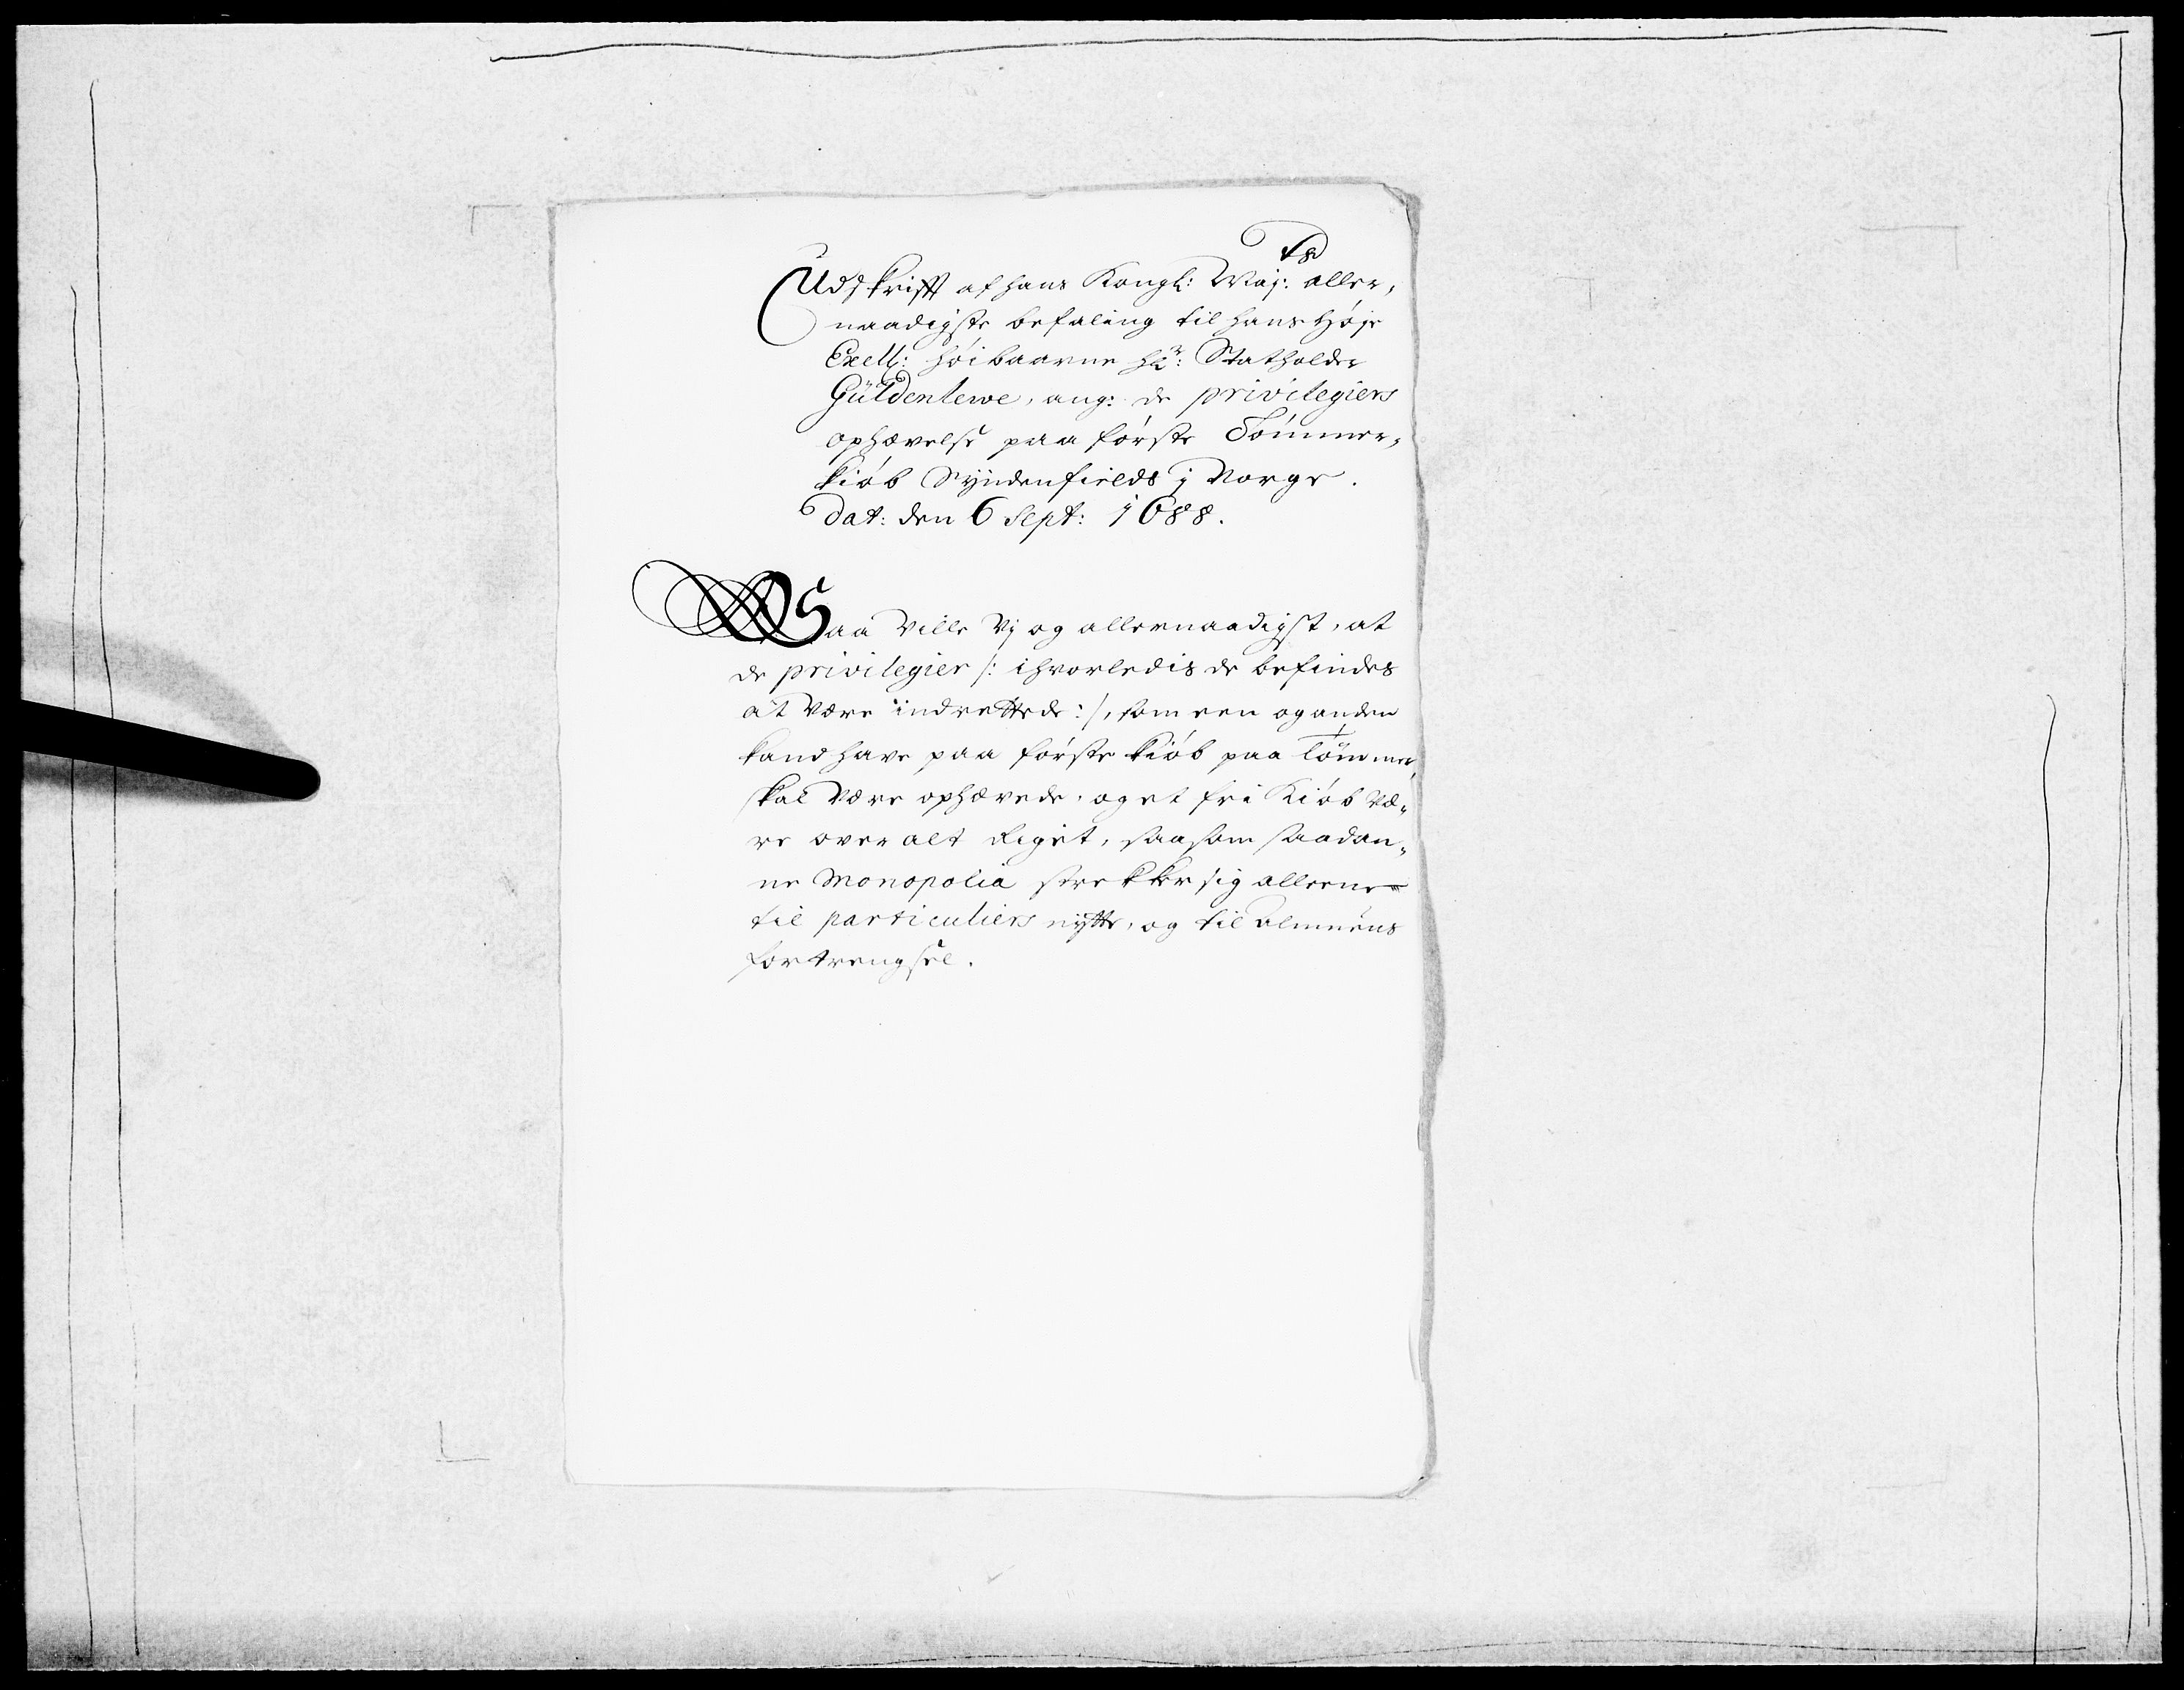 Udskrifft af hans Kongl: Maj: aller,
naadigste befaling til hans Høje
Excell: Høibaarne Hr: Statholder
Güldenlewe, ang: de privilegiers
ophævelse paa første Tømmer,
kiøb Syndenfields j Norge.
dat: den 6 Sept: 1688.
Saa ville Vj og allernaadigst, at
de privilegier /: ihvorledis de befindes
at være indrettede :/, som een og anden
kand have paa første kiøb paa Tømmer,
skal være ophævede, og et fri Kiøb væ,
re over alt Riget, saasom saadan,
ne Monopolia strekker sig alleene
til particuliers nytte, og til Almuens
fortrengsel.